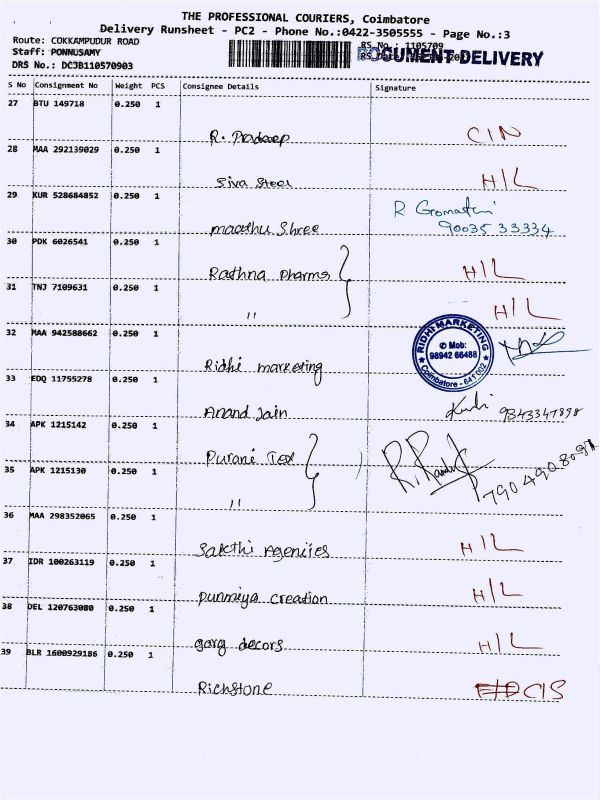 THE PROFESSIONAL COURIERS, Coimbatore
Delivery Runsheet - PC2 - Phone No.:0422-3505555 - Page No.:3
Route: COKKAMPUDUR ROAD
RS No.: 1105709
Staff: PONNUSAMY
DOCUMENT DELIVERY
DRS No.: DCJB110570903
S No Consignment No Weight PCS Consignee Details Signature
27 BTU 149718 0.250 1
R. Pradeep CIN
28 MAA 292139029 0.250 1
Siva Steel H/L
29 KUR 528684852 0.250 1
R Gomathi
maathu Shree 90035 33334
30 PDK 6026541 0.250 1
Rathna Pharms H/L
31 TNJ 7109631 0.250 1
" H/L
32 MAA 942588662 0.250 1
RIDHI MARKETING
✆ Mob:
98942 66488
Coimbatore - 641 002
Ridhi marketing
33 EDQ 11755278 0.250 1
Anand Jain 9343347898
34 APK 1215142 0.250 1
Purani Tex
35 APK 1215130 0.250 1
" 7904908091
36 MAA 298352065 0.250 1
Sakthi Agencies H/L
37 IDR 100263119 0.250 1
Punmiya creation H/L
38 DEL 120763080 0.250 1
garg decors H/L
39 BLR 1600929186 0.250 1
Richstone CIS